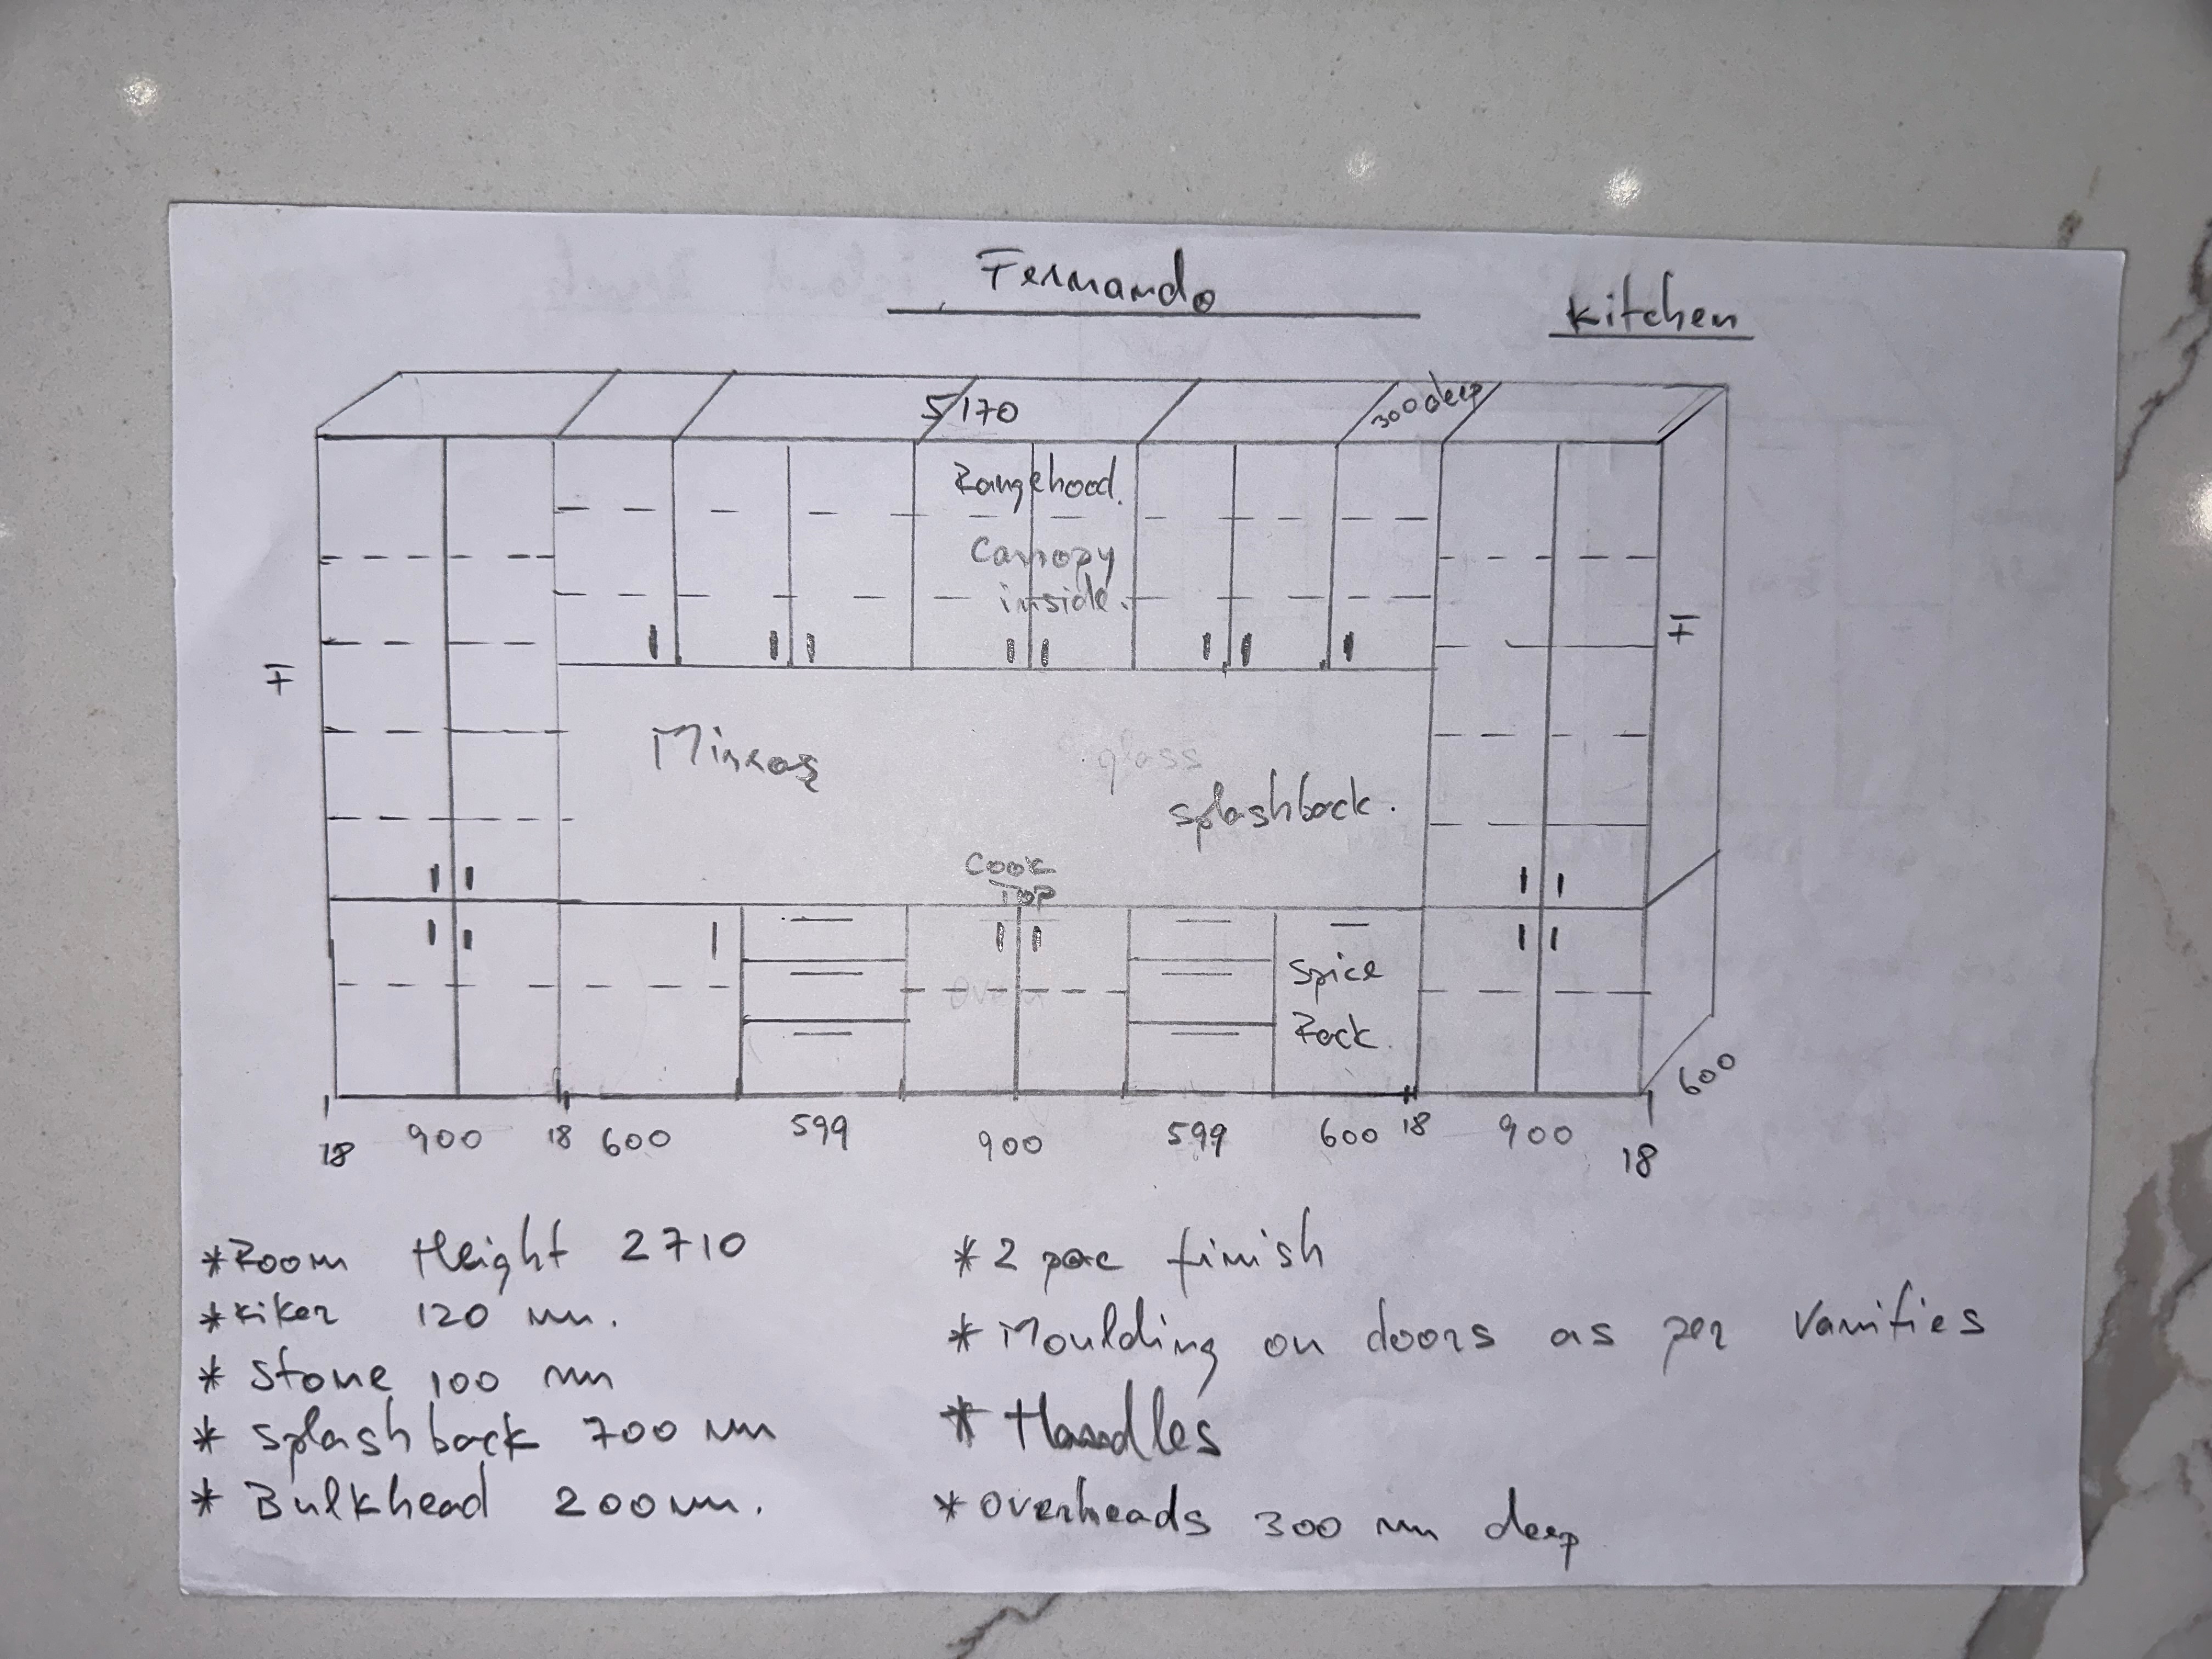 Fernando
Kitchen
5170
300 deep
Rangehood.
Canopy
inside.
F
F
Mirror
glass
splashback.
Cook
Top
oven
Spice
Rack.
600
18 900 18 600 599 900 599 600 18 900 18
*Room Height 2710
*kiker 120 mm.
* Stone 100 mm
* Splashback 700 mm
* Bulkhead 200 mm.
* 2 pac finish
* Moulding on doors as per Vanities
* Handles
* overheads 300 mm deep